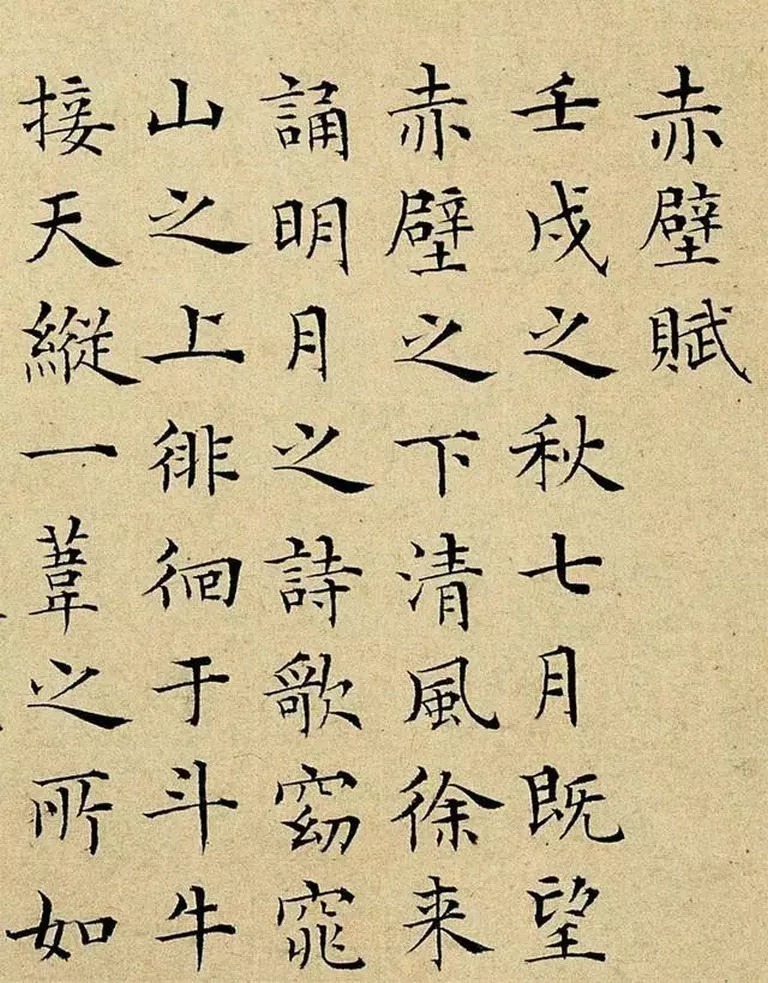 赤壁賦
壬戌之秋七月既望
赤壁之下清風徐来
誦明月之詩歌窈窕
山之上徘徊于斗牛
接天縱一葦之所如